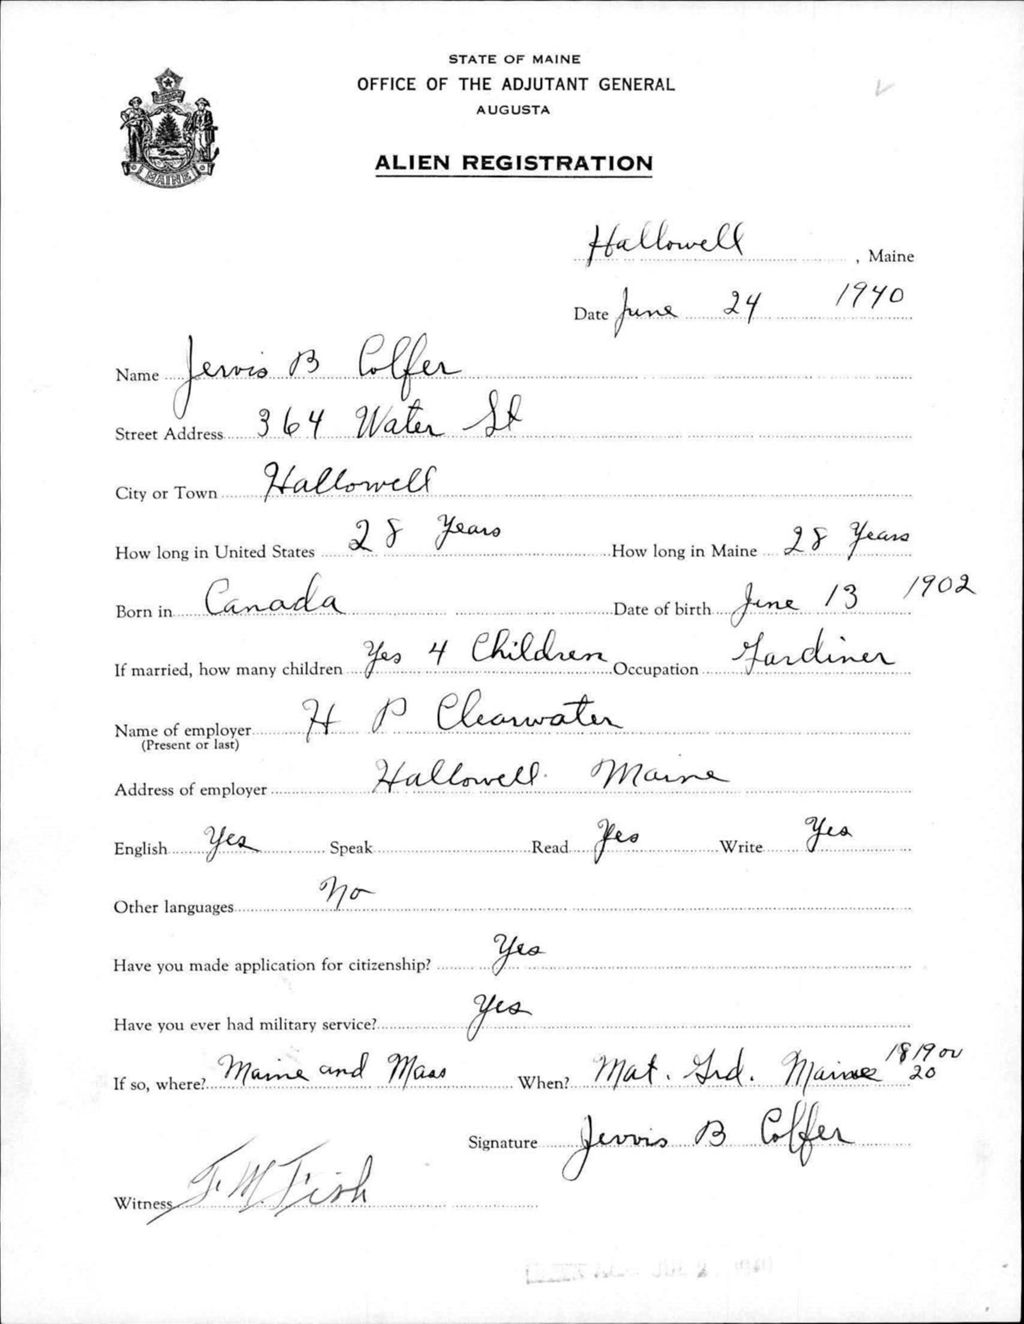 STATE OF MAINE
OFFICE OF THE ADJUTANT GENERAL
AUGUSTA
ALIEN REGISTRATION
MAINE
Hallowell, Maine
Date June 24 1940
Name Jervis B Colfer
Street Address 364 Water St
City or Town Hallowell
How long in United States 28 Years How long in Maine 28 Years
Born in Canada Date of birth June 13 1902
If married, how many children Yes 4 Children Occupation Gardiner
Name of employer H P Clearwater
(Present or last)
Address of employer Hallowell Maine
English Yes Speak Read Yes Write Yes
Other languages No
Have you made application for citizenship? Yes
Have you ever had military service? Yes
If so, where? Maine and Mass When? Nat. Grd. Maine 18 19 or 20
Signature Jervis B Colfer
Witness F. M. Fish